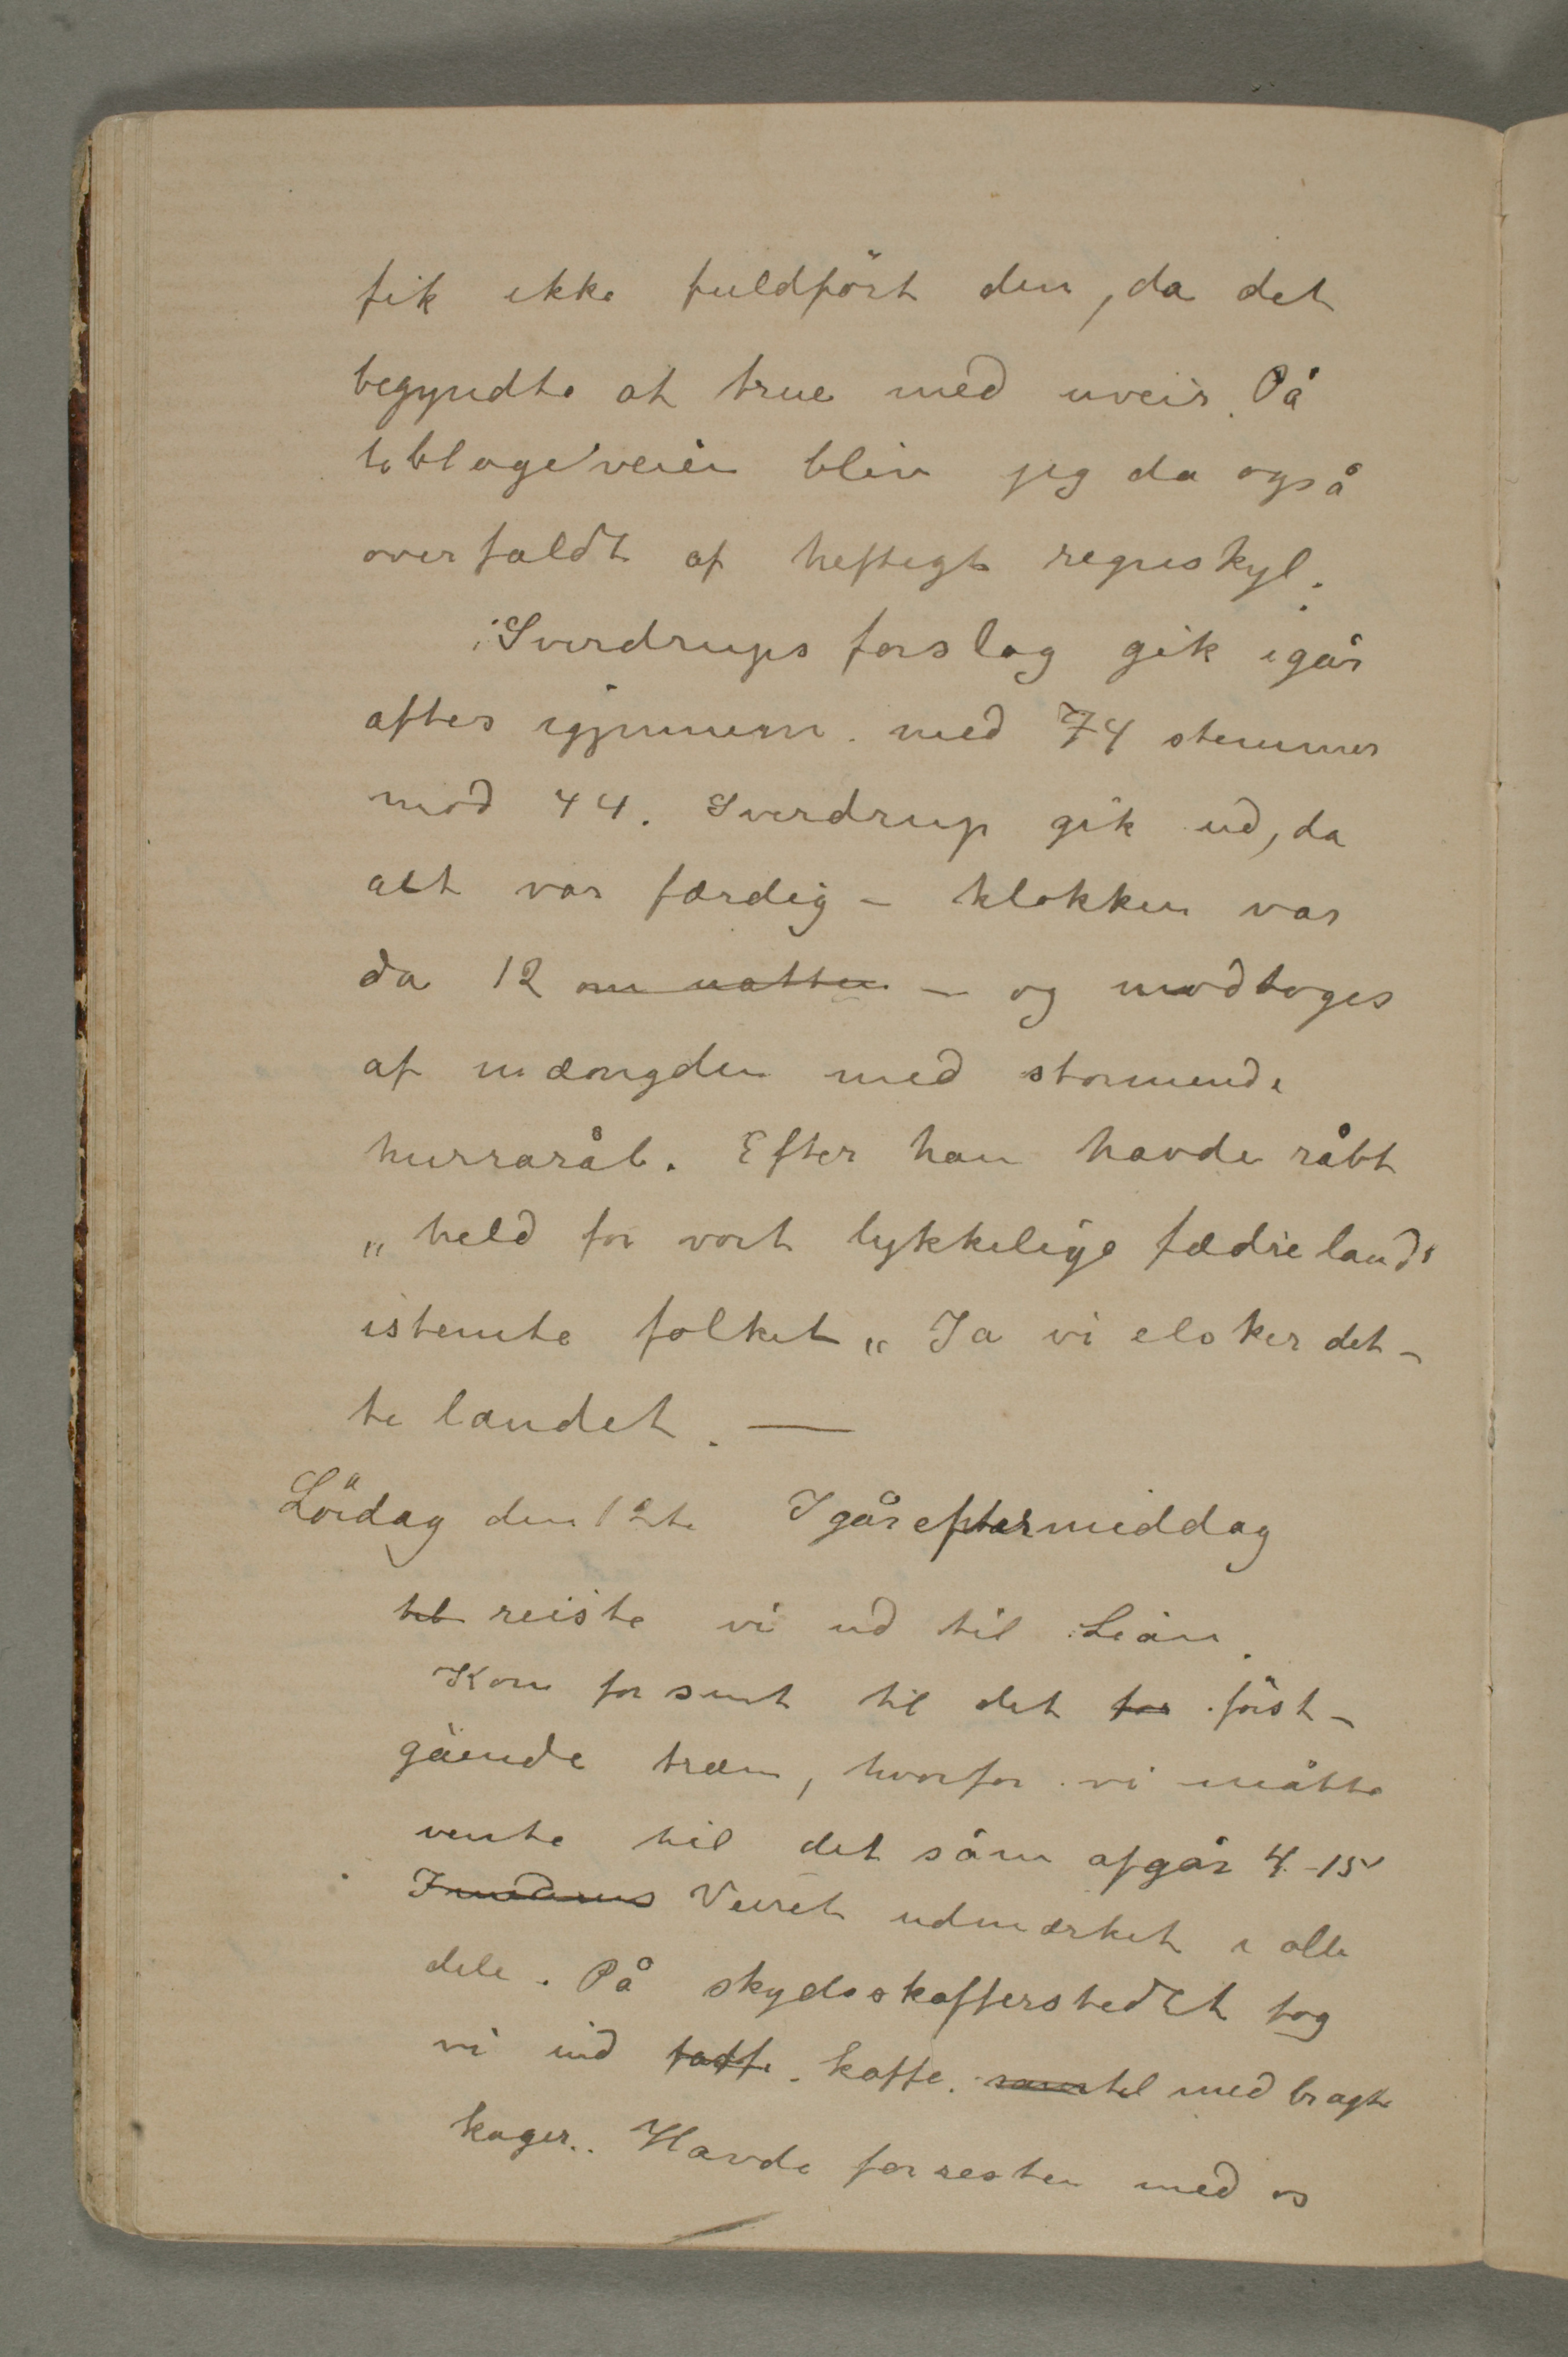 fik ikke fuldfört den, da det
begyndte at true med uveir. På
teblageveien blev jeg da også
overfaldt af heftigt regnskyl.
Sverdrups forslag gik igår
aftes igjennem med 74 stemmer
mod 44. Sverdrup gik ud, da
alt var færdig – klokken var
da 12 om natten – og modtoges
af mængden med stormende
hurraråb. Efter han havde råbt
„held for vort lykkelige fædreland"
istemte folket „Ja vi elsker det-
te landet. —
Lördag den 12te Igår eftermiddag
til reiste vi ud til Leån.
Kom for sent til det for först-
gående træn, hvorfor vi måtte
vente til det såm afgår 4-15
Veiret udmærket i alle
dele. På skydsskafferstedet tog
vi ind kaffe. til medbragte
kager.. Havde forresten med os